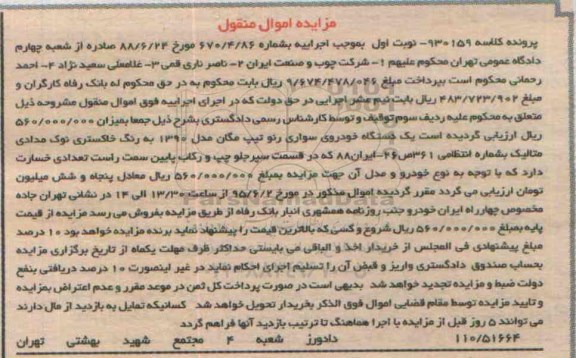 مزایده اموال منقول
پرونده کلاسه ۹۳۰۱۵۹- نوبت اول بموجب اجراییه بشماره ۶۷۰/۴/۸۶ مورخ ۸۸/۶/۲۴ صادره از شعبه چهارم
دادگاه عمومی تهران محکوم علیهم ۱- شرکت چوب و صنعت ایران ۲- ناصر ناری قمی ۳- غلامعلی سعید نژاد ۴- احمد
رحمانی محکوم است بپرداخت مبلغ ۹/۶۷۴/۴۷۸/۰۴۶ ریال بابت محکوم به در حق محکوم له بانک رفاه کارگران و
مبلغ ۴۸۳/۷۲۳/۹۰۲ ریال بابت نیم عشر اجرایی در حق دولت که در اجرای اجراییه فوق اموال منقول مشروحه ذیل
متعلق به محکوم علیه ردیف سوم توقیف و توسط کارشناس رسمی دادگستری بشرح ذیل جمعا بمیزان ۵۶۰/۰۰۰/۰۰۰
ریال ارزیابی گردیده است یک دستگاه خودروی سواری رنو تیپ مگان مدل ۱۳۹۰ به رنگ خاکستری نوک مدادی
متالیک بشماره انتظامی ۳۶۱ص۲۶-ایران۸۸ که در قسمت سپرجلو چپ و رکاب پایین سمت راست تعدادی خسارت
دارد که با توجه به نوع خودرو و مدل آن جهت مزایده بمبلغ ۵۶۰/۰۰۰/۰۰۰ ریال معادل پنجاه و شش میلیون
تومان ارزیابی می گردد مقرر گردیده اموال مذکور در مورخ ۹۵/۶/۲ از ساعت ۱۳/۳۰ الی ۱۴ در نشانی تهران جاده
مخصوص چهارراه ایران خودرو جنب روزنامه همشهری انبار بانک رفاه از طریق مزایده بفروش می رسد مزایده از قیمت
پایه بمبلغ ۵۶۰/۰۰۰/۰۰۰ ریال شروع و کسی که بالاترین قیمت را پیشنهاد نماید برنده مزایده خواهد بود ۱۰ درصد
مبلغ پیشنهادی فی المجلس از خریدار اخذ و الباقی می بایستی حداکثر ظرف مهلت یکماه از تاریخ برگزاری مزایده
بحساب صندوق دادگستری واریز و قبض آن را تسلیم اجرای احکام نماید در غیر اینصورت ۱۰ درصد دریافتی بنفع
دولت ضبط و مزایده تجدید خواهد شد بدیهی است در صورت پرداخت کل ثمن در موعد مقرر و عدم اعتراض بمزایده
و تایید مزایده توسط مقام قضایی اموال فوق الذکر بخریدار تحویل خواهد شد کسانیکه تمایل به بازدید از مال دارند
می توانند ۵ روز قبل از مزایده با اجرا هماهنگ تا ترتیب بازدید آنها فراهم گردد
۱۱۰/۵۱۶۶۴ دادورز شعبه ۴ مجتمع شهید بهشتی تهران